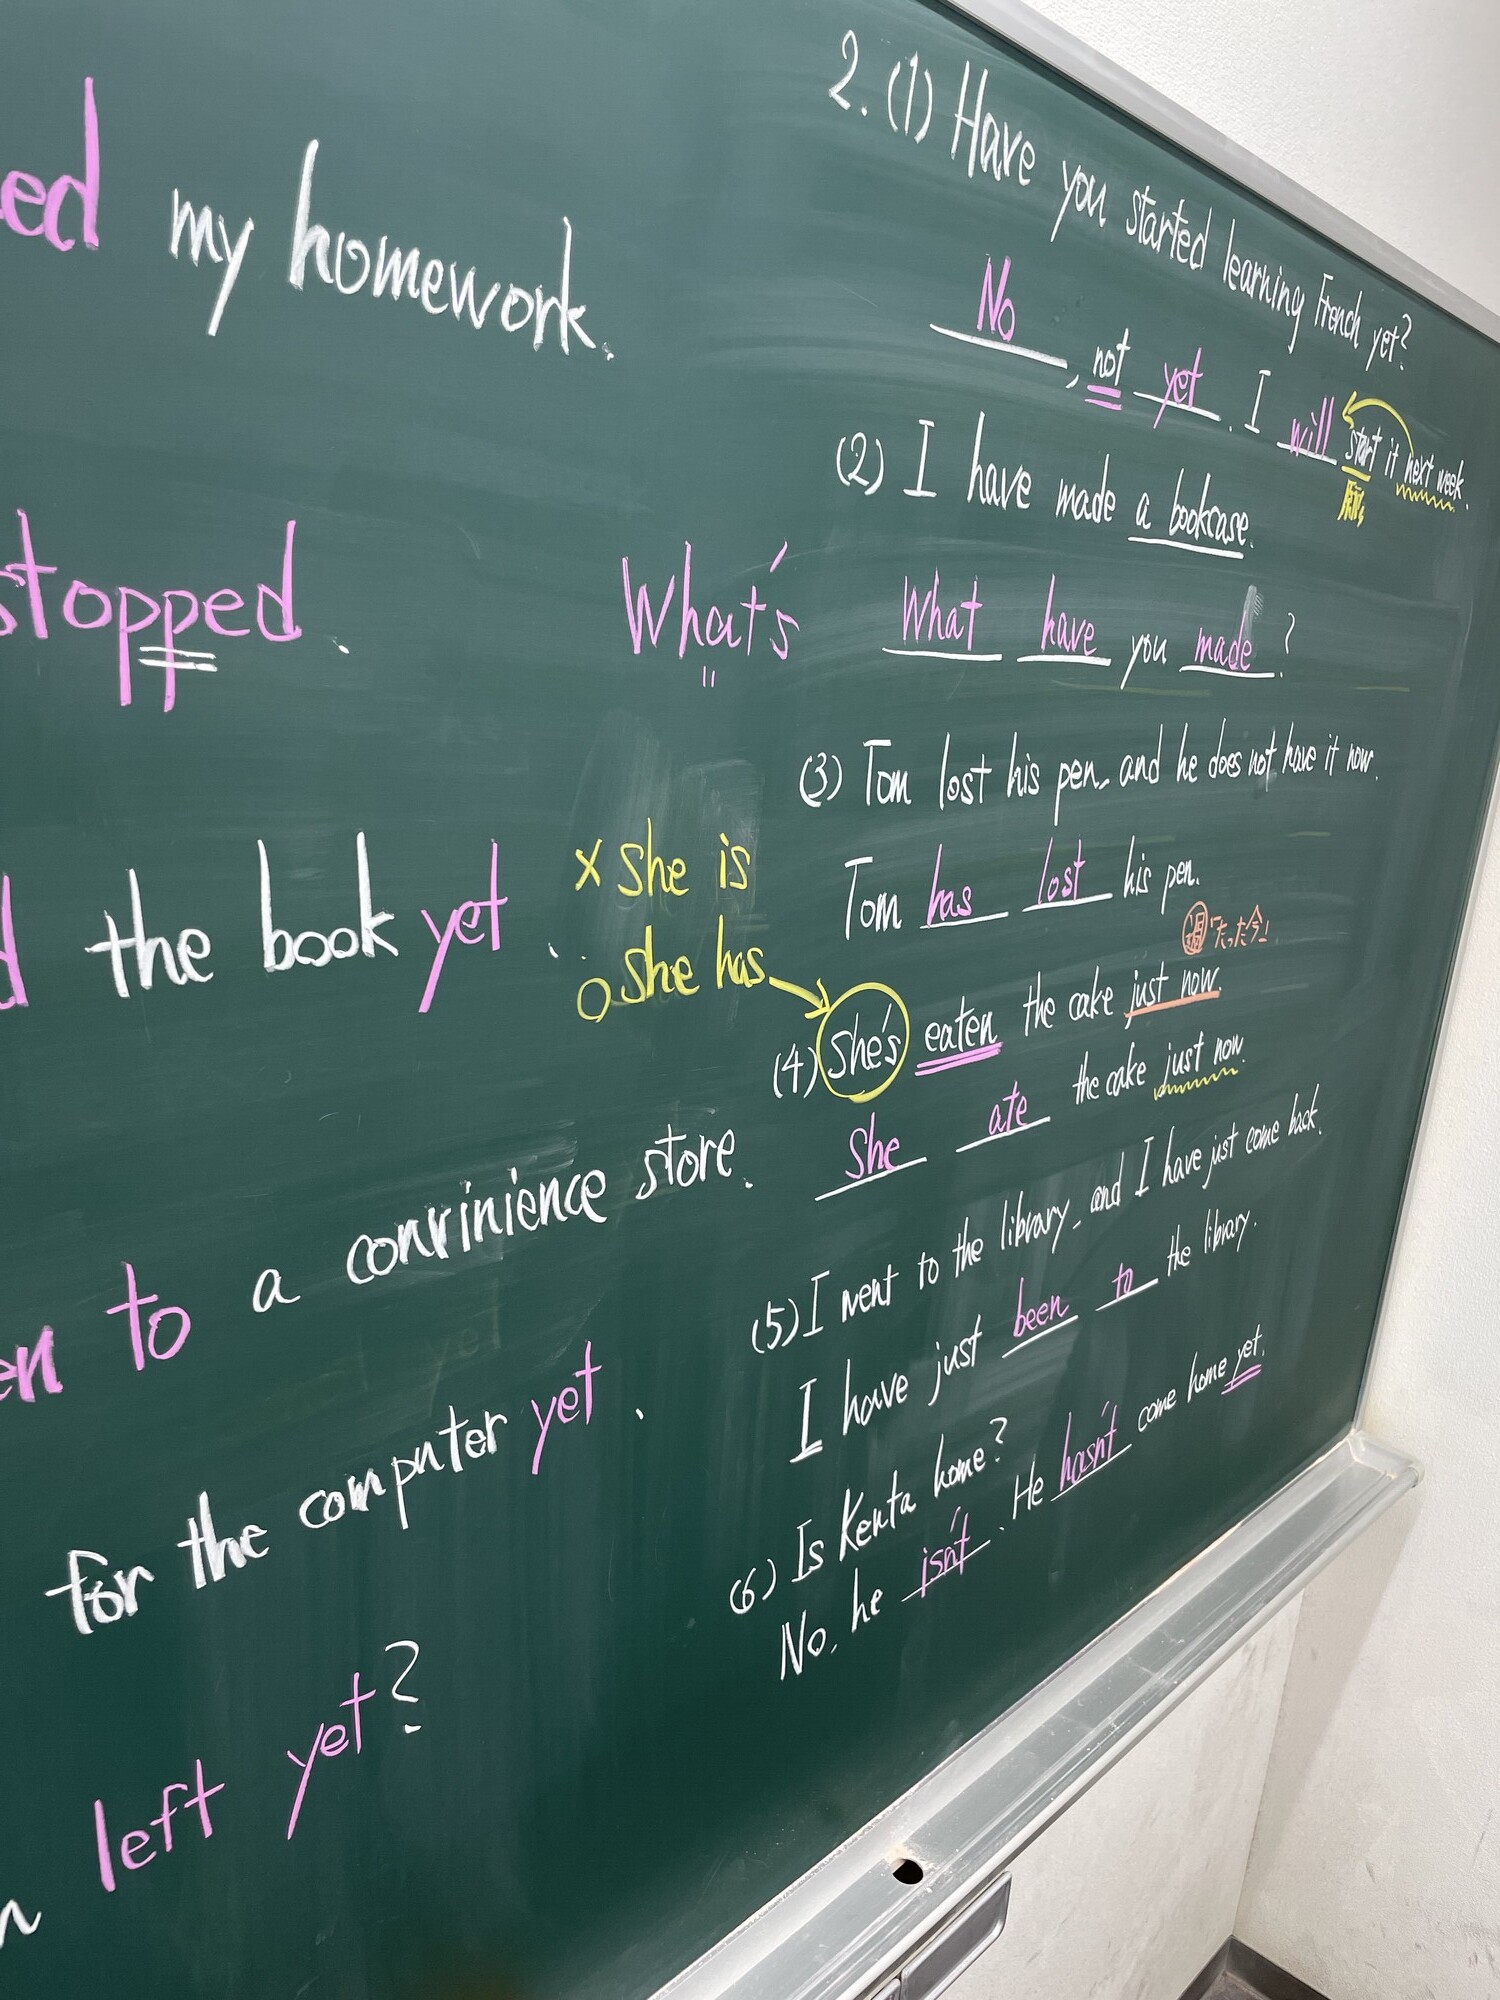 ed my homework.
stopped.
the book yet.
en to a convinience store.
for the computer yet.
left yet?
2. (1) Have you started learning French yet?
No, not yet. I will start it next week.
原形
(2) I have made a bookcase.
What's
What have you made?
(3) Tom lost his pen, and he does not have it now.
Tom has lost his pen.
× She is
○ She has
過 「たった今」
(4) She's eaten the cake just now.
She ate the cake just now.
(5) I went to the library, and I have just come back.
I have just been to the library.
(6) Is Kenta home?
No, he isn't. He hasn't come home yet.